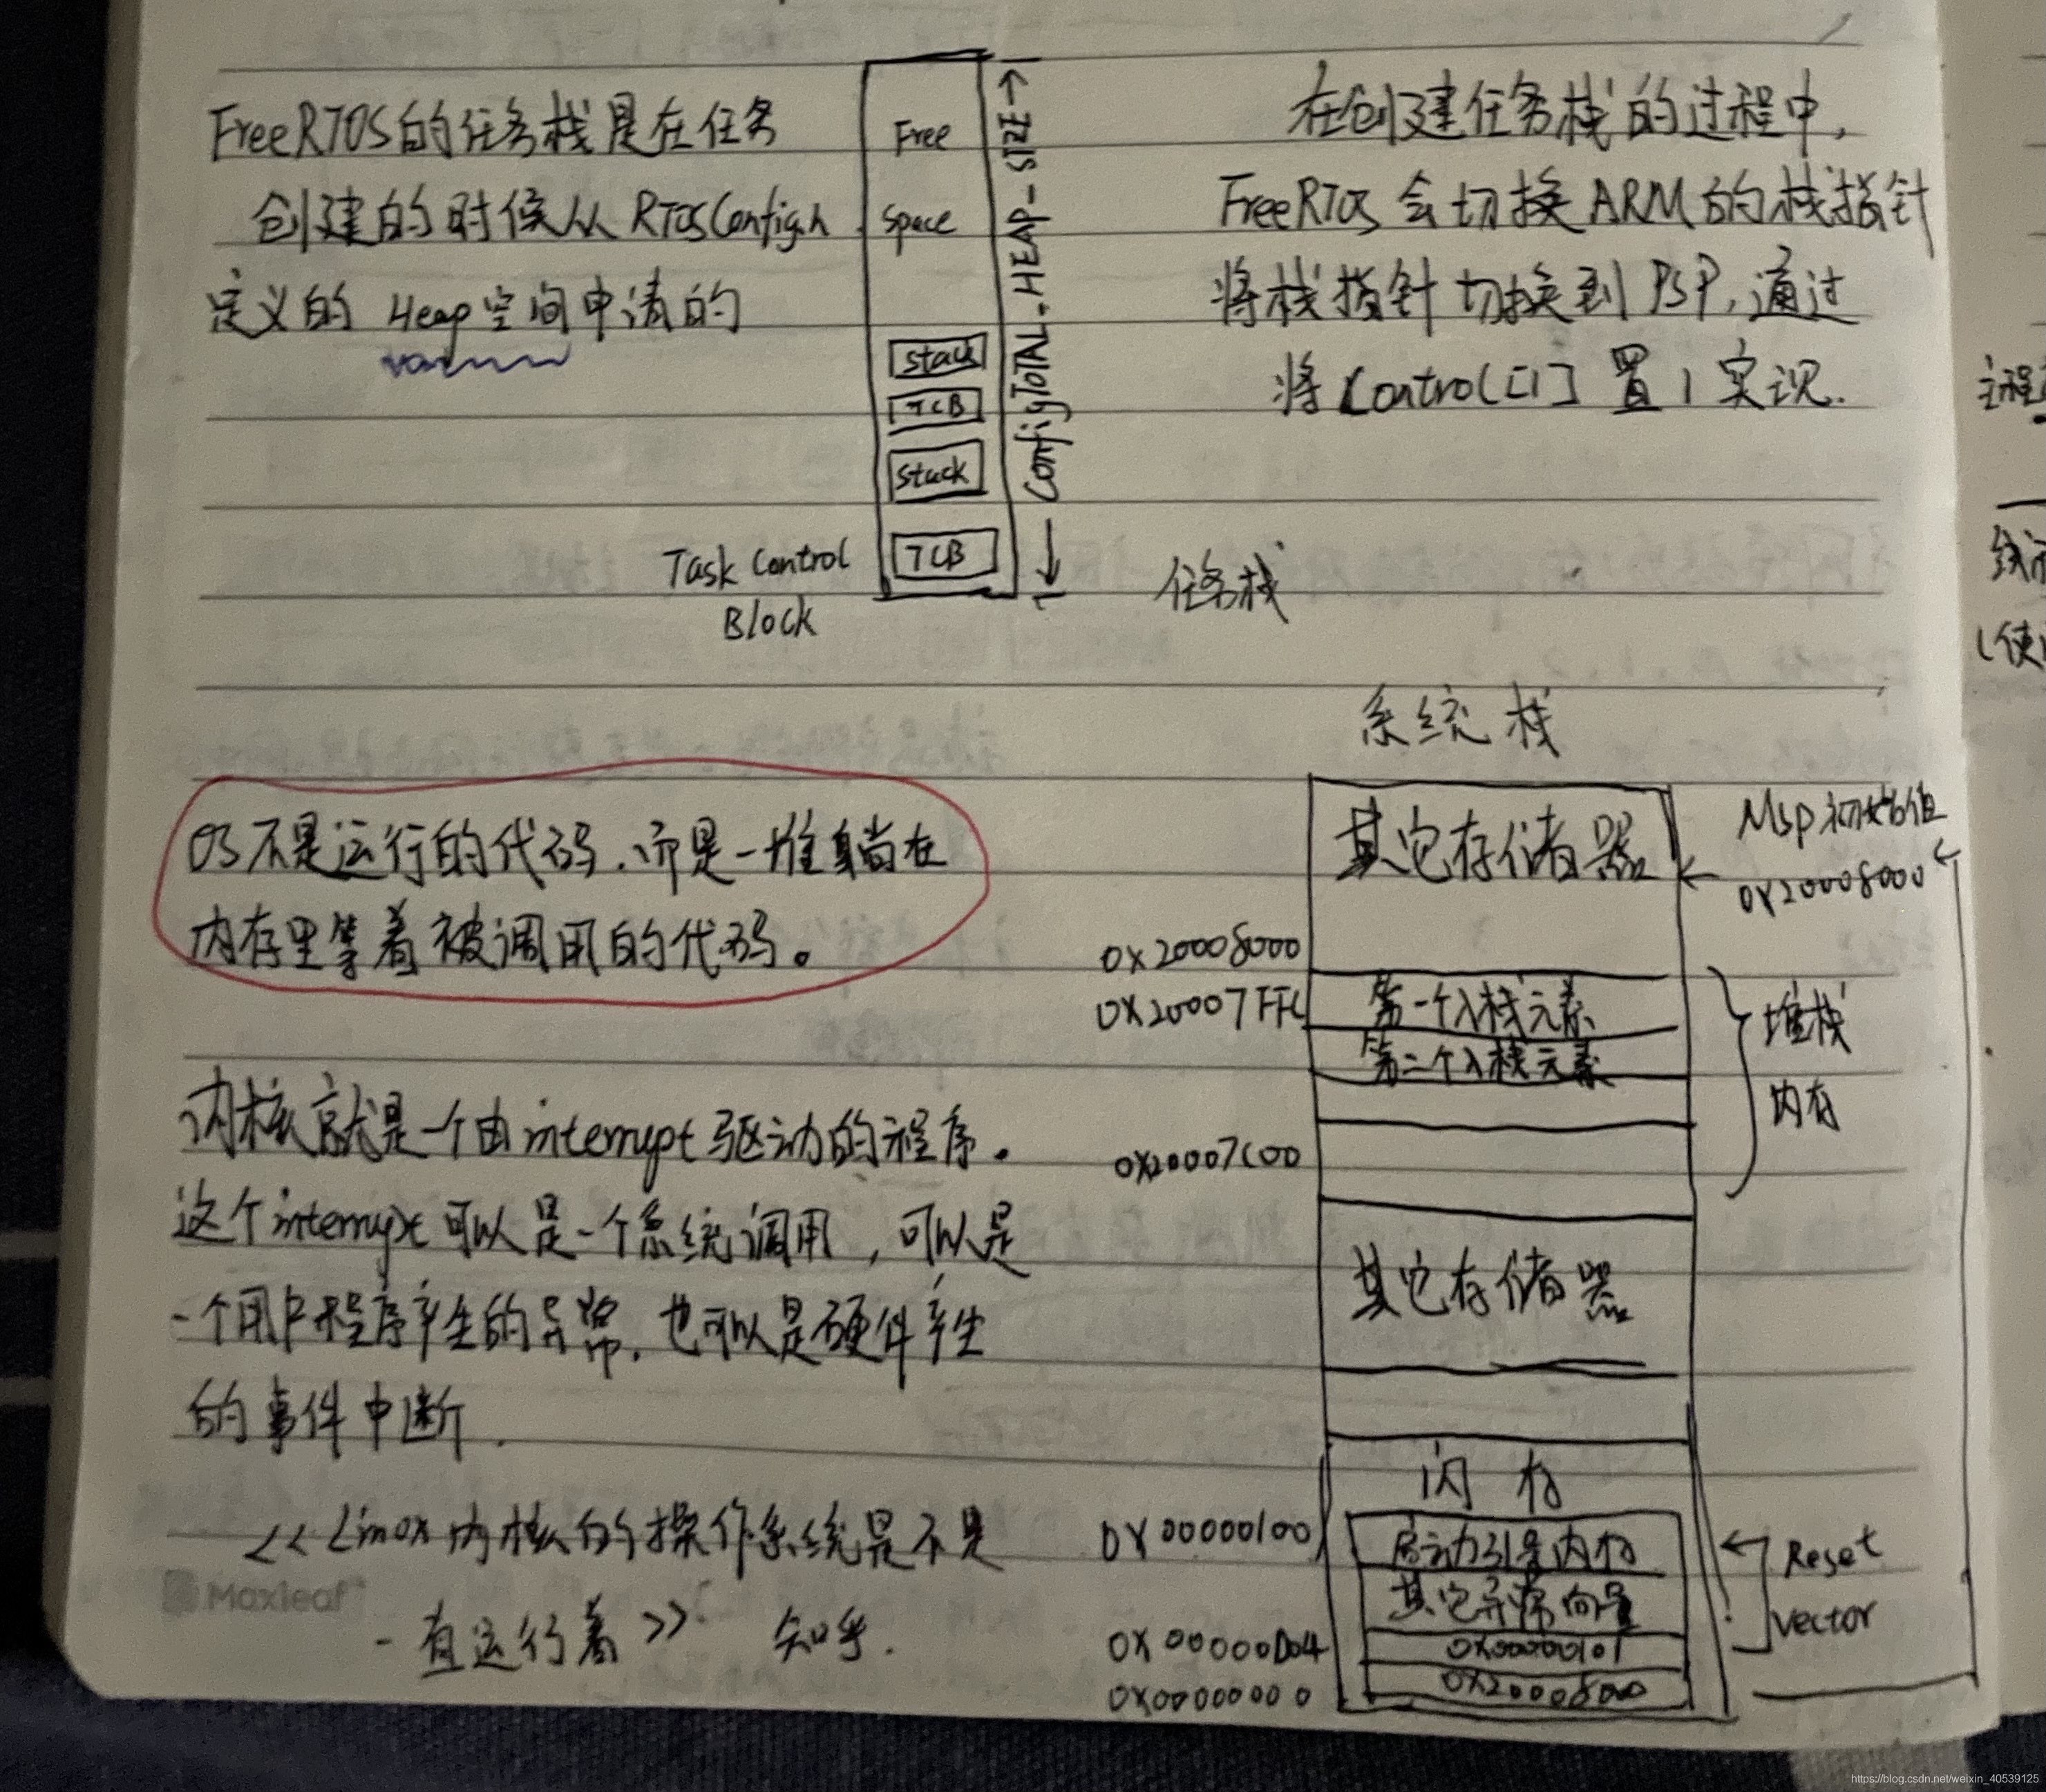 FreeRTOS的任务栈是在任务
创建的时候从 RTOSConfig.h
定义的 Heap空间申请的
Free
Space
stack
TCB
stack
TCB
Task Control
Block
ConfigTOTAL-HEAP-SIZE
在创建任务栈的过程中,
FreeRTOS 会切换 ARM的栈指针
将栈指针切换到 PSP, 通过
将 Control[1] 置1实现.
任务栈
主程
(使
系统栈
OS不是运行的代码.而是一堆躺在
内存里等着被调用的代码。
内核就是一个由interrupt驱动的程序.
这个interrupt可以是一个系统调用,可以是
一个用户程序产生的异常.也可以是硬件产生
的事件中断.
<<Linox内核的操作系统是不是
一直运行着>> 知乎.
Maxleaf
其它存储器
Msp初始值
0x20008000
0x20008000
0x20007FFC
第一个入栈元素
第二个入栈元素
堆栈
内存
0x20007C00
其它存储器
闪存
0x00000100
启动引导内存
其它异常向量
0x00000004
0x00000101
0x00000000
0x20008000
Reset
vector
https://blog.csdn.net/weixin_40539125